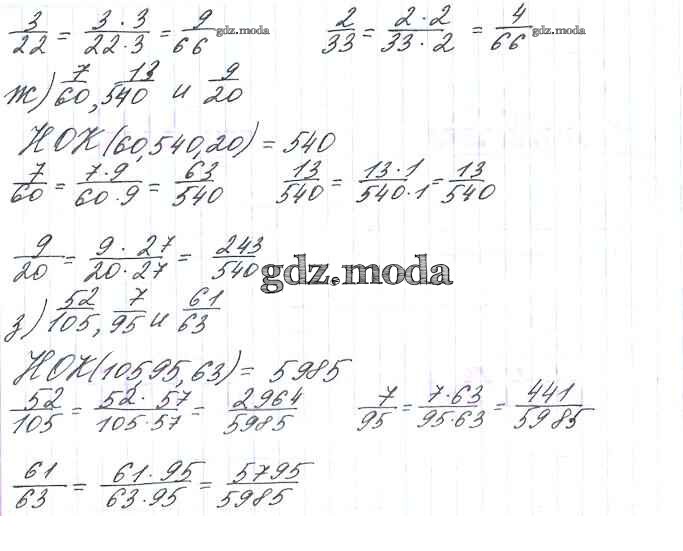 3/22 = 3·3/22·3 = 9/66 gdz.moda 2/33 = 2·2/33·2 = 4/66 gdz.moda
ж) 7/60, 13/540 и 9/20
НОК(60,540,20) = 540
7/60 = 7·9/60·9 = 63/540 13/540 = 13·1/540·1 = 13/540
9/20 = 9·27/20·27 = 243/540
gdz.moda
з) 52/105, 7/95 и 61/63
НОК(105,95,63) = 5985
52/105 = 52·57/105·57 = 2964/5985 7/95 = 7·63/95·63 = 441/5985
61/63 = 61·95/63·95 = 5795/5985